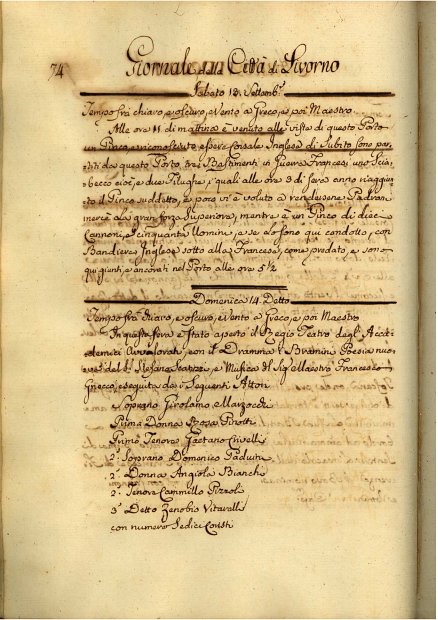 74
Giornale della Città di Livorno
Sabato 13. Settemb.e
Tempo frà chiaro, e oscuro, e Vento a Greco, e poi Maestro.
Alle ore 11. di mattina è venuto alle viste di questo Porto
un Pinco, e riconosciuto essere Corsale Inglese di Subito sono par,,
titi da questo Porto tre Bastimenti in Guerra Francesi uno Scia,,
becco cioè, e due Filughe, i quali alle ore 3 di sera anno raggiun,,
to il Pinco suddetto, e pora vi è voluto a rendersene Padroni
mercè la gran forza Superiora, mentre è un Pinco di dieci
Cannoni, e Cinquanta Uomini, e se lo sono qui condotto, con
Bandiera Inglese sotto alla Francese, come predato, e sono
qui giunti, e ancorati nel Porto alle ore 5½
Domenica 14. Detto
Tempo frà Chiaro, e oscuro, e Vento a Greco, e poi Maestro
In questa sera è stato aperto il Regio Teatro degli Acca,,
demici Avvalorati con il Dramma i Bramini Poesia nuo,,
va del Sig. Stefano e Musica del Sig. Maestro Francesco
Gnecco, eseguita da i Seguenti Attori
Soprano Girolamo Marzocchi
Prima Donna Rosa Pinotti
Primo Tenore Gaetano Crivelli
2.o Soprano Domenico
2.a Donna Angiola Bianchi
2.o Tenore Cammillo Pizzoli
3.o Detto Zenobio Vitarelli
con numero Sedici Coristi